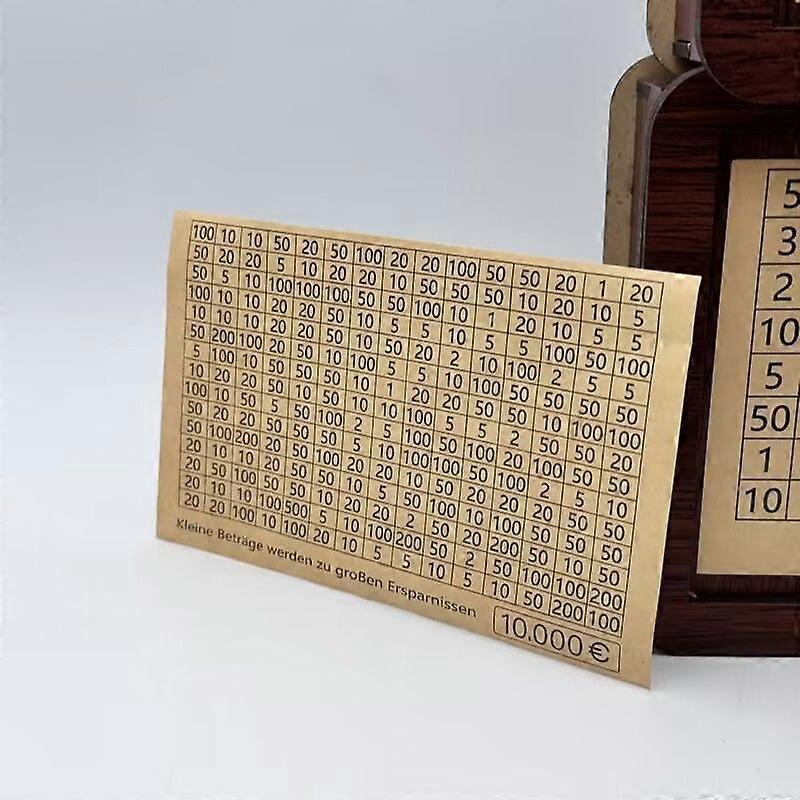 100 10 10 50 20 50 100 20 20 100 50 50 20 1 20
50 20 20 5 10 20 20 10 50 50 50 10 20 10 5
50 5 10 100 100 100 50 50 100 10 1 20 10 5 5
100 10 10 20 20 50 10 5 5 10 5 5 100 50 100
10 10 10 20 20 50 10 50 20 2 10 100 2 5 5
50 200 100 20 50 10 100 5 5 10 100 50 50 50 50
5 100 10 50 50 50 10 1 20 20 50 50 10 100 100
10 20 20 50 10 50 10 10 100 5 5 2 50 50 20
100 10 50 5 50 100 2 5 100 50 100 20 100 50 50
50 20 20 50 50 50 100 10 100 100 50 100 2 5 10
50 100 200 20 50 100 20 20 10 50 20 20 20 50 50
20 10 10 20 50 50 10 5 50 100 10 100 50 50 50
20 50 100 50 50 10 20 20 2 50 20 200 50 10 50
20 10 10 100 500 5 10 100 200 50 2 50 100 100 200
20 20 100 10 100 20 10 5 5 10 5 10 50 200 100
Kleine Beträge werden zu großen Ersparnissen
10.000 €
5
3
2
10
5
50
1
10